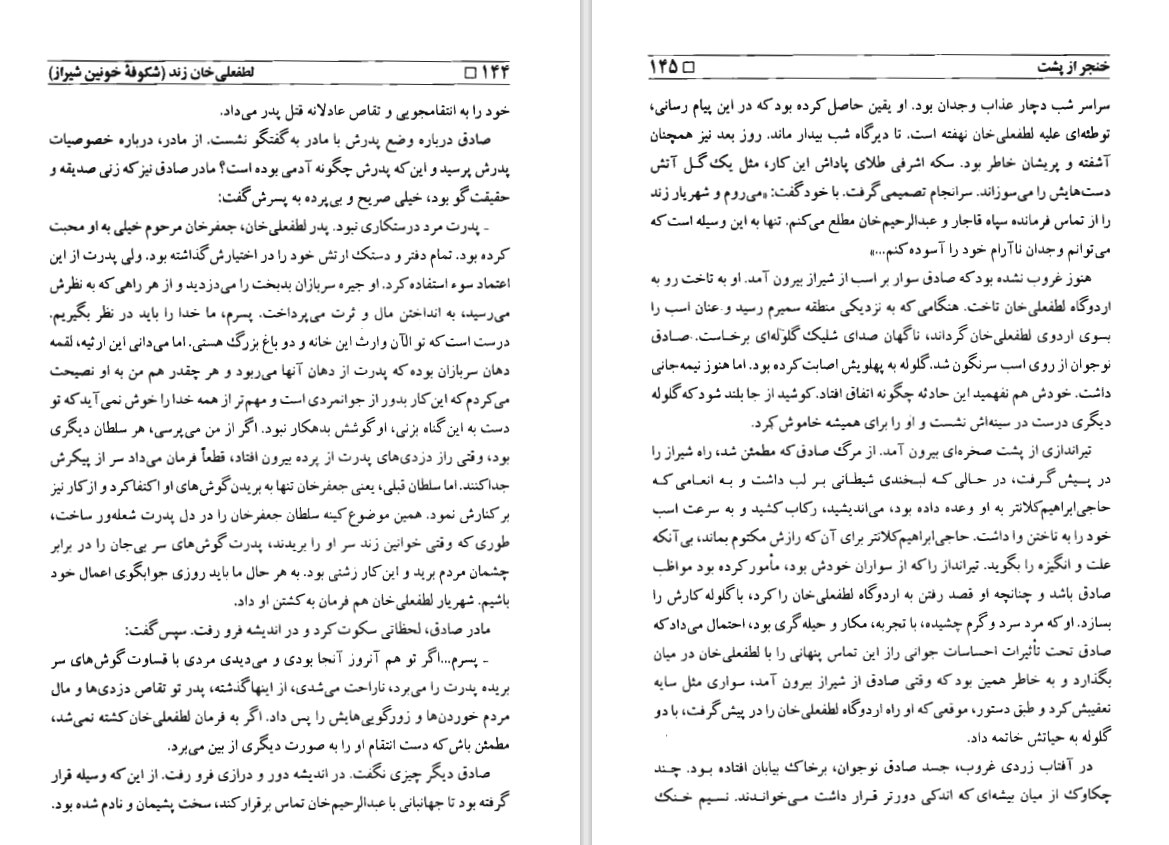 ۱۴۴ □ لطفعلی‌خان زند (شکوفهٔ خونین شیراز)
خود را به انتقامجویی و تقاص عادلانه قتل پدر می‌داد.
صادق درباره وضع پدرش با مادر به گفتگو نشست. از مادر، درباره خصوصیات
پدرش پرسید و این‌که پدرش چگونه آدمی بوده است؟ مادر صادق نیز که زنی صدیقه و
حقیقت‌گو بود، خیلی صریح و بی‌پرده به پسرش گفت:
ـ پدرت مرد درستکاری نبود. پدر لطفعلی‌خان، جعفرخان مرحوم خیلی به او محبت
کرده بود. تمام دفتر و دستک ارتش خود را در اختیارش گذاشته بود. ولی پدرت از این
اعتماد سوء استفاده کرد. او جیره سربازان بدبخت را می‌دزدید و از هر راهی که به نظرش
می‌رسید، به انداختن مال و ثرت می‌پرداخت. پسرم، ما خدا را باید در نظر بگیریم.
درست است که تو الآن وارث این خانه و دو باغ بزرگ هستی. اما می‌دانی این ارثیه، لقمه
دهان سربازان بوده که پدرت از دهان آنها می‌ربود و هر چقدر هم من به او نصیحت
می‌کردم که این کار بدور از جوانمردی است و مهم‌تر از همه خدا را خوش نمی‌آید که تو
دست به این گناه بزنی، او گوشش بدهکار نبود. اگر از من می‌پرسی، هر سلطان دیگری
بود، وقتی راز دزدی‌های پدرت از پرده بیرون افتاد، قطعاً فرمان می‌داد سر از پیکرش
جدا کنند. اما سلطان قبلی، یعنی جعفرخان تنها به بریدن گوش‌های او اکتفا کرد و از کار نیز
بر کنارش نمود. همین موضوع کینه سلطان جعفرخان را در دل پدرت شعله‌ور ساخت،
طوری که وقتی خوانین زند سر او را بریدند، پدرت گوش‌های سر بی‌جان را در برابر
چشمان مردم برید و این کار زشتی بود. به هر حال ما باید روزی جوابگوی اعمال خود
باشیم. شهریار لطفعلی‌خان هم فرمان به کشتن او داد.
مادر صادق، لحظاتی سکوت کرد و در اندیشه فرو رفت. سپس گفت:
ـ پسرم...اگر تو هم آنروز آنجا بودی و می‌دیدی مردی با قساوت گوش‌های سر
بریده پدرت را می‌برد، ناراحت می‌شدی، از اینها گذشته، پدر تو تقاص دزدی‌ها و مال
مردم خوردن‌ها و زورگویی‌هایش را پس داد. اگر به فرمان لطفعلی‌خان کشته نمی‌شد،
مطمئن باش که دست انتقام او را به صورت دیگری از بین می‌برد.
صادق دیگر چیزی نگفت. در اندیشه دور و درازی فرو رفت. از این که وسیله قرار
گرفته بود تا جهانبانی با عبدالرحیم‌خان تماس برقرار کند، سخت پشیمان و نادم شده بود.
خنجر از پشت □ ۱۴۵
سراسر شب دچار عذاب وجدان بود. او یقین حاصل کرده بود که در این پیام رسانی،
توطئه‌ای علیه لطفعلی‌خان نهفته است. تا دیرگاه شب بیدار ماند. روز بعد نیز همچنان
آشفته و پریشان خاطر بود. سکه اشرفی طلای پاداش این کار، مثل یک گل آتش
دست‌هایش را می‌سوزاند. سرانجام تصمیمی گرفت. با خود گفت: «می‌روم و شهریار زند
را از تماس فرمانده سپاه قاجار و عبدالرحیم‌خان مطلع می‌کنم. تنها به این وسیله است که
می‌توانم وجدان ناآرام خود را آسوده کنم...»
هنوز غروب نشده بود که صادق سوار بر اسب از شیراز بیرون آمد. او به تاخت رو به
اردوگاه لطفعلی‌خان تاخت. هنگامی که به نزدیکی منطقه سمیرم رسید و عنان اسب را
بسوی اردوی لطفعلی‌خان گرداند، ناگهان صدای شلیک گلوله‌ای برخاست. صادق
نوجوان از روی اسب سرنگون شد. گلوله به پهلویش اصابت کرده بود. اما هنوز نیمه‌جانی
داشت. خودش هم نفهمید این حادثه چگونه اتفاق افتاد. کوشید از جا بلند شود که گلوله
دیگری درست در سینه‌اش نشست و او را برای همیشه خاموش کرد.
تیراندازی از پشت صخره‌ای بیرون آمد. از مرگ صادق که مطمئن شد، راه شیراز را
در پیش گرفت، در حالی که لبخندی شیطانی بر لب داشت و به انعامی که
حاجی‌ابراهیم‌کلانتر به او وعده داده بود، می‌اندیشید، رکاب کشید و به سرعت اسب
خود را به تاختن وا داشت. حاجی‌ابراهیم‌کلانتر برای آن‌که رازش مکتوم بماند، بی‌آنکه
علت و انگیزه را بگوید. تیرانداز را که از سواران خودش بود، مأمور کرده بود مواظب
صادق باشد و چنانچه او قصد رفتن به اردوگاه لطفعلی‌خان را کرد، با گلوله کارش را
بسازد. او که مرد سرد و گرم چشیده، با تجربه، مکار و حیله‌گری بود، احتمال می‌داد که
صادق تحت تأثیرات احساسات جوانی راز این تماس پنهانی را با لطفعلی‌خان در میان
بگذارد و به خاطر همین بود که وقتی صادق از شیراز بیرون آمد، سواری مثل سایه
تعقیبش کرد و طبق دستور، موقعی که او راه اردوگاه لطفعلی‌خان را در پیش گرفت، با دو
گلوله به حیاتش خاتمه داد.
در آفتاب زردی غروب، جسد صادق نوجوان، برخاک بیابان افتاده بود. چند
چکاوک از میان بیشه‌ای که اندکی دورتر قرار داشت می‌خواندند. نسیم خنک